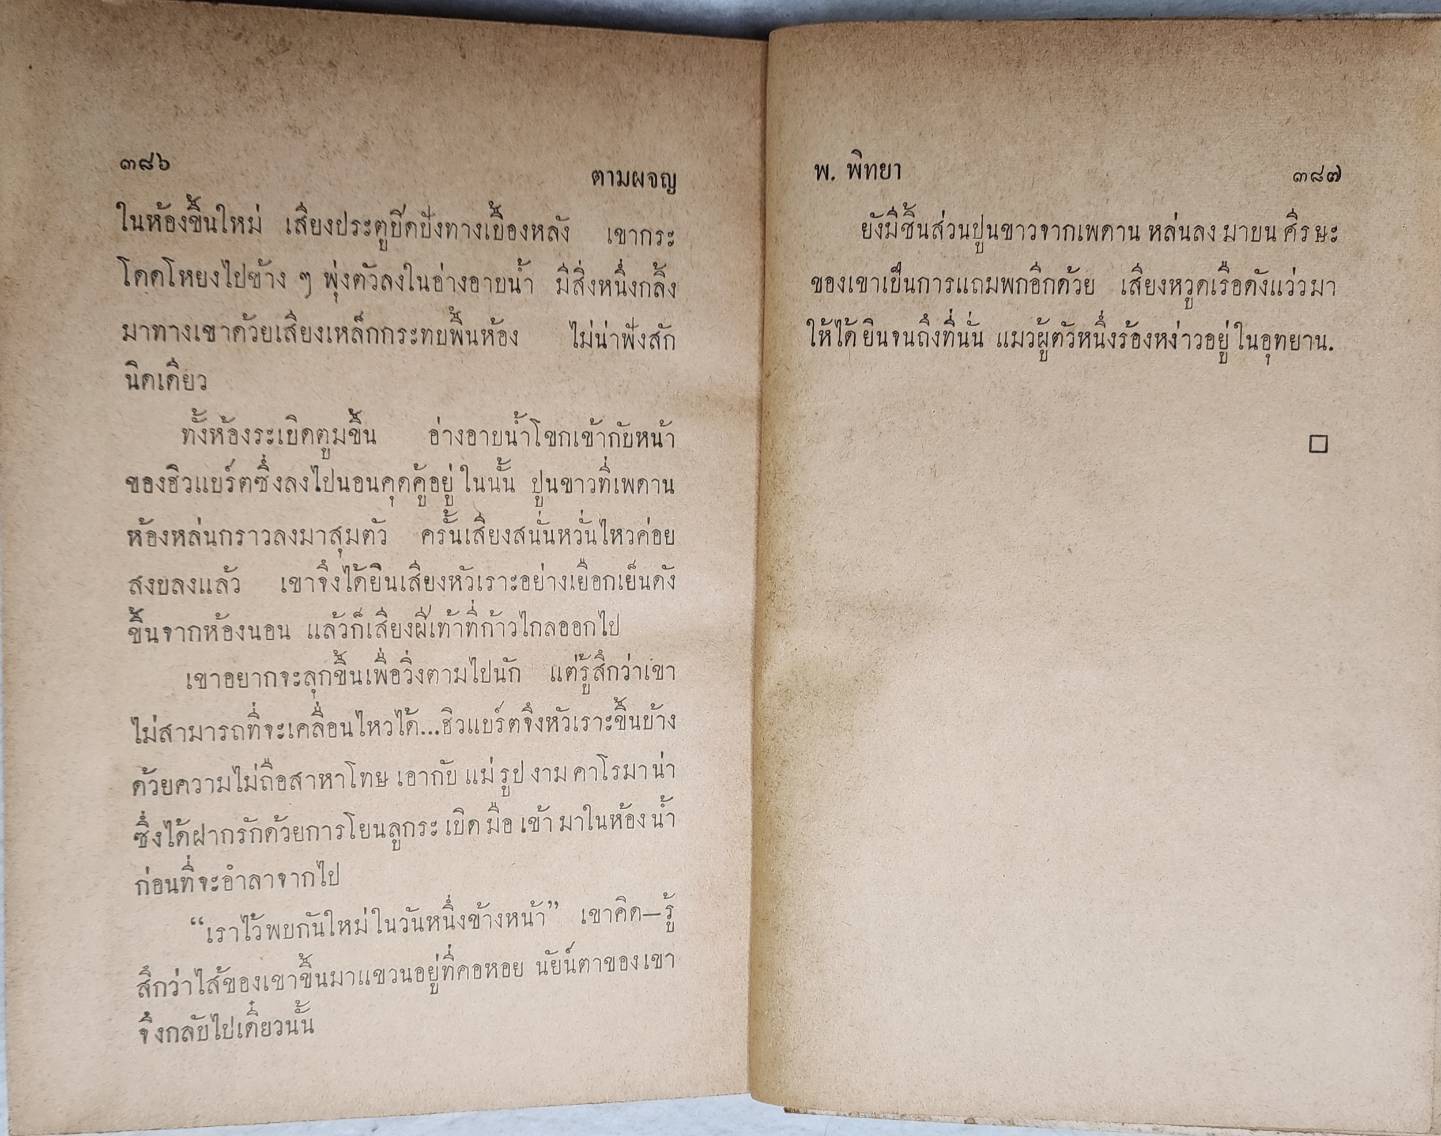 ๓๘๖
ตามผจญ
ในห้องขึ้นใหม่ เสียงประตูปีดปังทางเบื้องหลัง เขากระ
โดดโหยงไปข้าง ๆ พุ่งตัวลงในอ่างอาบน้ำ มีสิ่งหนึ่งกลิ้ง
มาทางเขาด้วยเสียงเหล็กกระทบพื้นห้อง ไม่น่าฟังสัก
นิดเดียว
ทั้งห้องระเบิดตูมขึ้น อ่างอาบน้ำโขกเข้ากับหน้า
ของฮิวแบร์ตซึ่งลงไปนอนคุดคู้อยู่ในนั้น ปูนขาวที่เพดาน
ห้องหล่นกราวลงมาสุมตัว ครั้นเสียงสนั่นหวั่นไหวค่อย
สงบลงแล้ว เขาจึงได้ยินเสียงหัวเราะอย่างเยือกเย็นดัง
ขึ้นจากห้องนอน แล้วก็เสียงฝีเท้าที่ก้าวไกลออกไป
เขาอยากจะลุกขึ้นเพื่อวิ่งตามไปนัก แต่รู้สึกว่าเขา
ไม่สามารถที่จะเคลื่อนไหวได้...ฮิวแบร์ตจึงหัวเราะขึ้นบ้าง
ด้วยความไม่ถือสาหาโทษ เอากับ แม่ รูป งาม คาโรมาน่า
ซึ่งได้ฝากรักด้วยการโยนลูกระเบิด มือ เข้า มาในห้อง น้ำ
ก่อนที่จะอำลาจากไป
“เราไว้พบกันใหม่ในวันหนึ่งข้างหน้า” เขาคิด—รู้
สึกว่าไส้ของเขาขึ้นมาแขวนอยู่ที่คอหอย นัยน์ตาของเขา
จึงกลับไปเดี๋ยวนั้น
พ. พิทยา
๓๘๗
ยังมีชิ้นส่วนปูนขาวจากเพดาน หล่นลง มาบน ศีรษะ
ของเขาเป็นการแถมพกอีกด้วย เสียงหวูดเรือดังแว่วมา
ให้ได้ ยินจนถึงที่นั่น แมวผู้ตัวหนึ่งร้องหง่าวอยู่ ในอุทยาน.